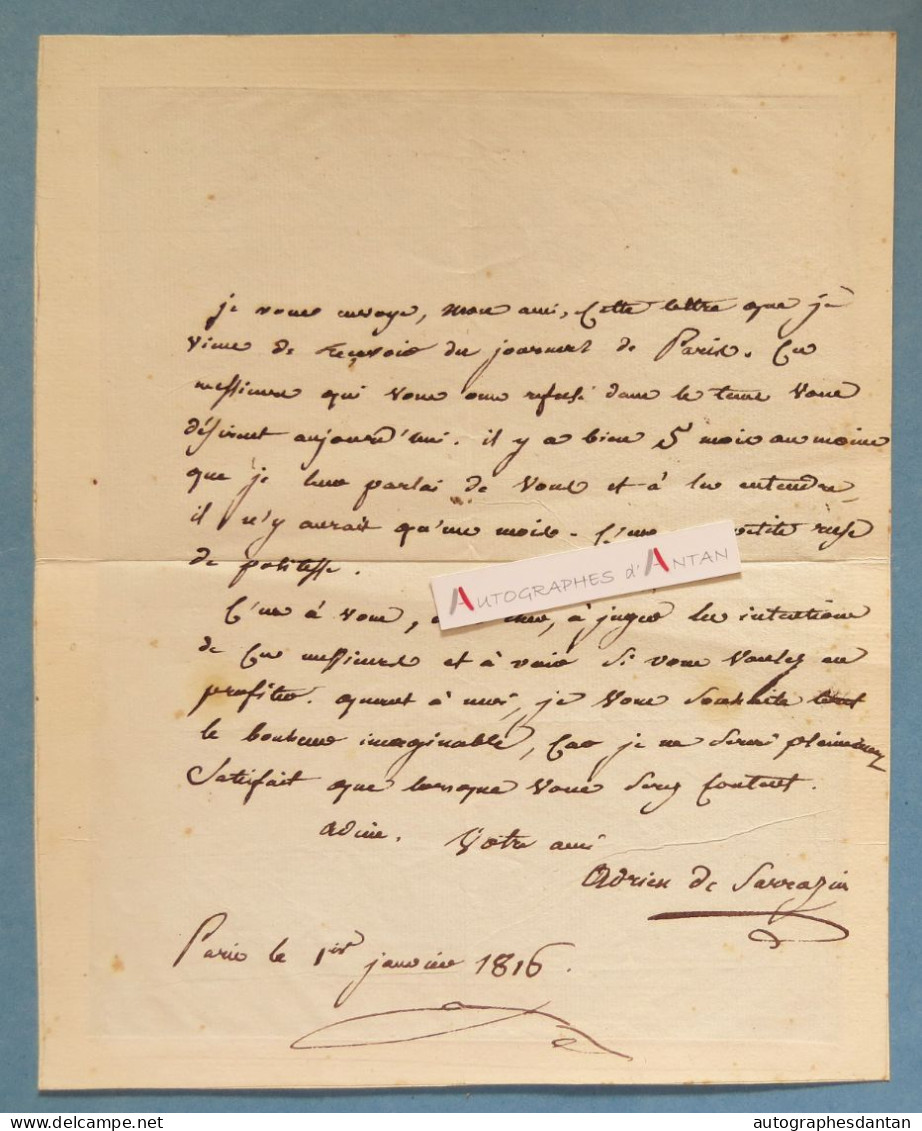 je vous envoye, mon ami, cette lettre que je
viens de recevoir du journal de Paris. Ces
messieurs qui vous ont refusé dans le tems vous
désirent aujourd'hui. il y a bien 5 mois au moins
que je leur parlai de vous et à les entendre,
il n'y aurait qu'un mois. C'est petite ruse
de politesse.
AUTOGRAPHES d'ANTAN
C'est à vous, à juger les intentions
de ces messieurs et à voir si vous voulez en
profiter. quant à moi, je vous souhaite tout
le bonheur imaginable, car je ne serai pleinement
satisfait que lorsque vous serez content.
adieu. Votre ami
Adrien de Sarrazin
Paris le 1er janvier 1816.
delcampe.net
autographesdantan